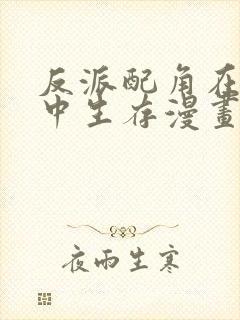 反派配角在
中生存漫畫
夜雨生寒